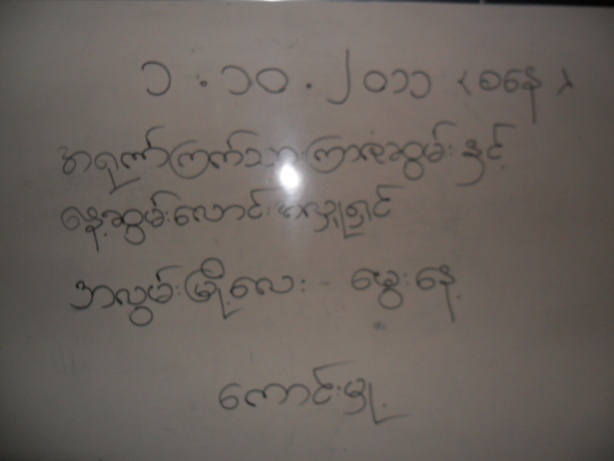 ၁.၁၀.၂၀၁၁ (စနေ)
အရုဏ်ကြက်သားကြာဇံဆွမ်းနှင့်
နေ့ဆွမ်းလောင်းအလှူရှင်
အလွမ်းမြို့လေး - မွေးနေ့
ကောင်းမှု